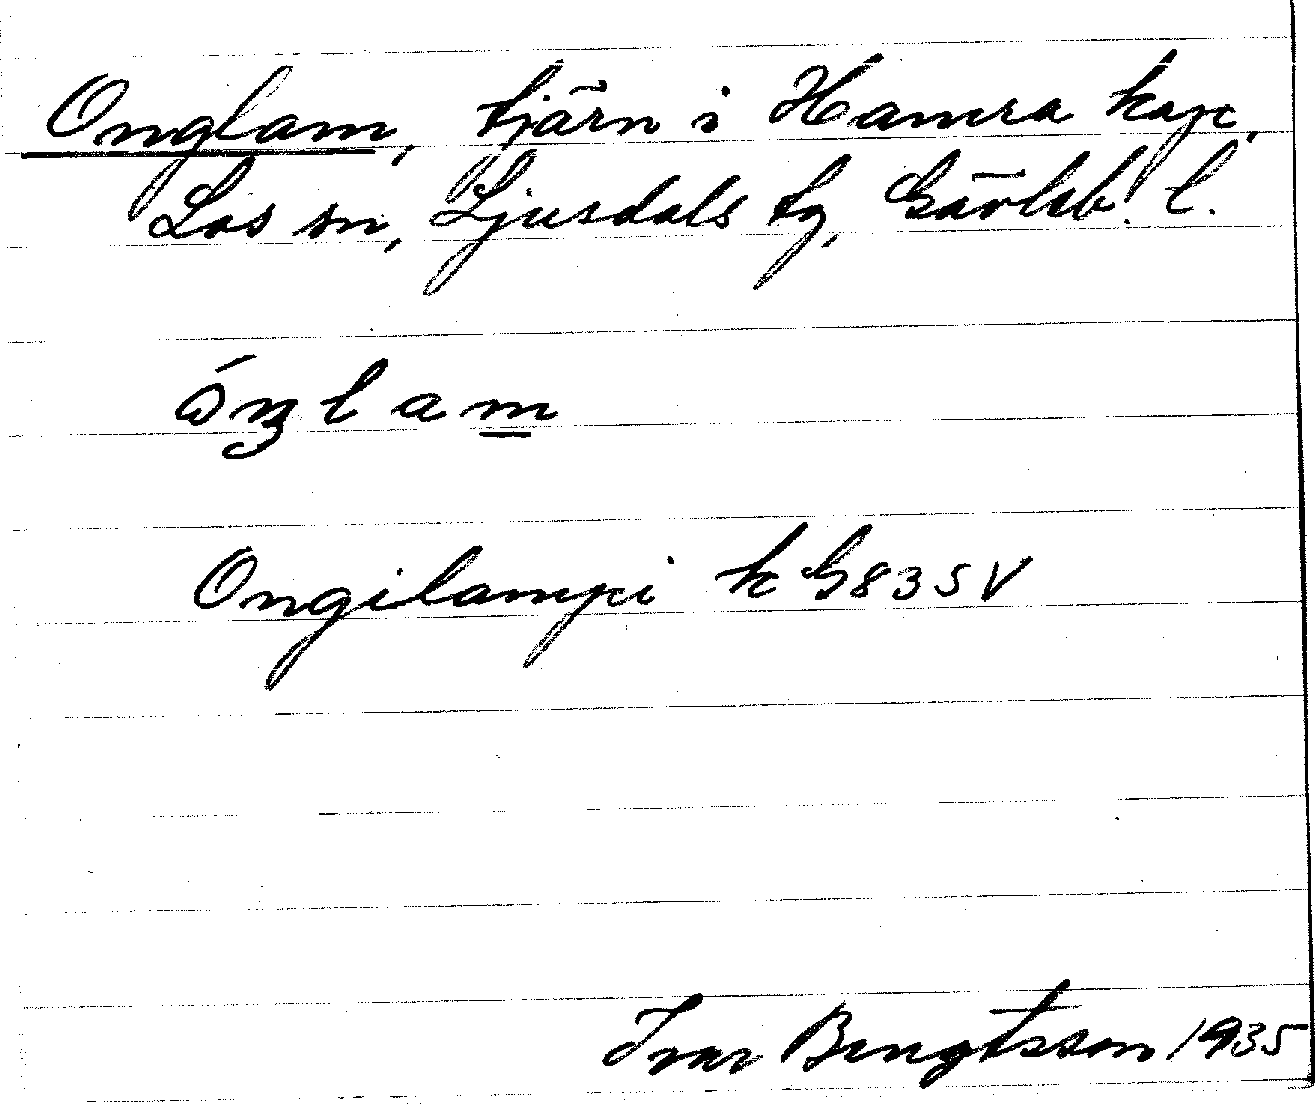 Onglam, tjärn i Hamra kap,
Los sn, Ljusdals tg, Gävleb. l.
óŋlam
Ongilampi k G835V
Ivar Bengtsson 1935